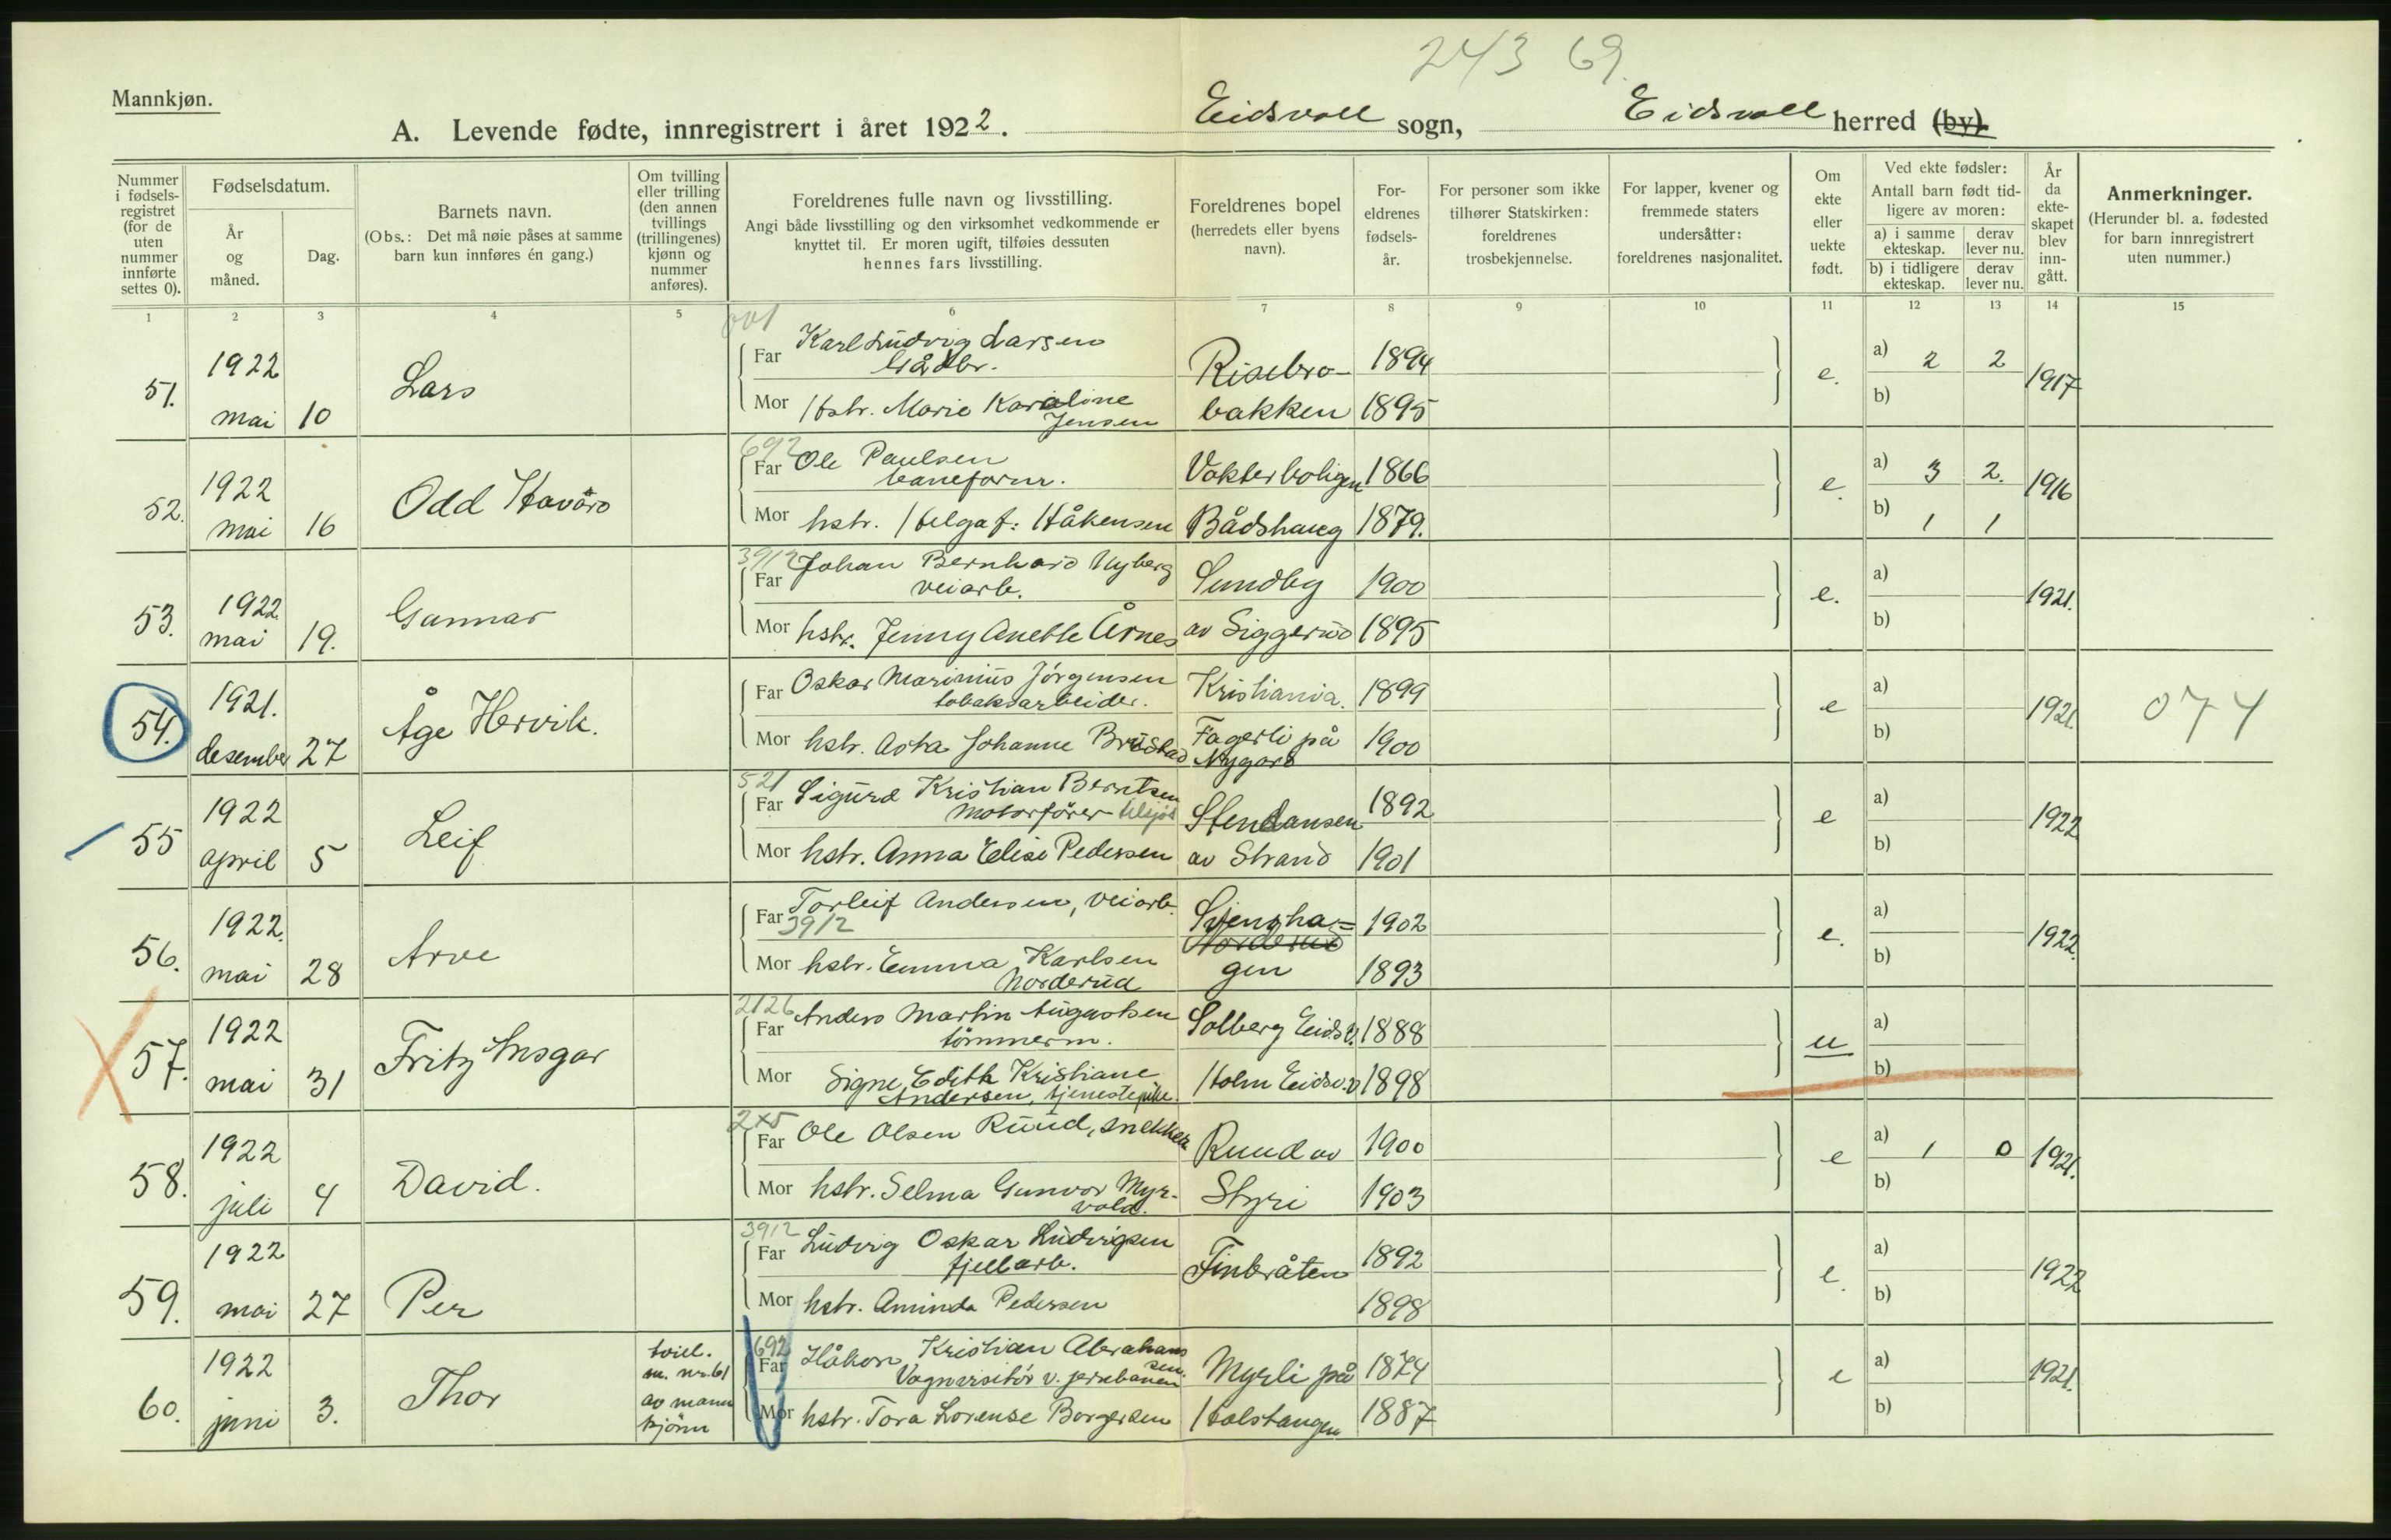 243 69
Mannkjøn.
A. Levende fødte, innregistrert i året 1922. Eidsvoll sogn, Eidsvoll herred (by).
Nummer i fødsels-registret (for de uten nummer innførte settes 0).
Fødselsdatum.
År og måned.
Dag.
Barnets navn.
(Obs.: Det må nøie påses at samme barn kun innføres én gang.)
Om tvilling eller trilling (den annen tvillings (trillingenes) kjønn og nummer anføres).
Foreldrenes fulle navn og livsstilling.
Angi både livsstilling og den virksomhet vedkommende er knyttet til. Er moren ugift, tilføies dessuten hennes fars livsstilling.
Foreldrenes bopel (herredets eller byens navn).
For-eldrenes fødsels-år.
For personer som ikke tilhører Statskirken: foreldrenes trosbekjennelse.
For lapper, kvener og fremmede staters undersåtter: foreldrenes nasjonalitet.
Om ekte eller uekte født.
Ved ekte fødsler:
Antall barn født tid-ligere av moren:
a) i samme ekteskap. derav lever nu.
b) i tidligere ekteskap. derav lever nu.
År da ekte-skapet blev inn-gått.
Anmerkninger.
(Herunder bl. a. fødested for barn innregistrert uten nummer.)
1 2 3 4 5 6 7 8 9 10 11 12 13 14 15
001
Far Karl Ludvig Larsen
Gårdbr.
51. 1922 mai 10 Lars Risebro- 1894 e. a) 2 2 1917
Mor Hstr. Marie Karoline Jensen bakken 1895 b)
692
Far Ole Paulsen Vokterboligen 1866 a) 3 2.
baneform.
52. 1922 mai 16 Odd Havård e. 1916
Mor hstr. Helga f: Håkensen Bådshaug 1879. b) 1 1
3912
Far Johan Bernhard Nyberg Sundby 1900 a)
veiarb.
53. 1922 mai 19. Gunnar e. 1921.
Mor hstr. Jenny Anette Årnes av Siggerud 1895 b)
Far Oskar Marinius Jørgensen Kristiania. 1899 a)
tobaksarbeider.
54. 1921. desember 27 Åge Hervik. e 1921. 074
Mor hstr. Asta Johanne Brustad Fagerli på Nygard 1900 b)
521
Far Sigurd Kristian Berntsen 1892 a)
Motorfører
55 1922 april 5 Leif Stendansen e 1922
Mor hstr. Anna Elise Pedersen av Strand 1901 b)
Far Torleif Andersen, veiarb. Svensha= 1902 a)
3912 Norderud
56. 1922. mai 28 Arve e. 1922.
Mor hstr. Emma Karlsen gen 1893 b)
Norderud
2126
Far Anders Martin Augustsen Solberg Eidsv. 1888 a)
tømmerm.
57. 1922 mai 31 Fritz Ansgar u
Mor Signe Edith Kristiane Holm Eidsv. 1898 b)
Andersen, tjenestepike.
2x5
Far Ole Olsen Ruud, snekker Ruud av 1900 a) 1 0
58. 1922 juli 4 David. e 1921.
Mor hstr. Selma Gunvor Myr-vold. Styri 1903 b)
3912
Far Ludvig Oskar Ludvigsen 1892 a)
fjellarb.
59. 1922 mai 27 Per Finbråten e. 1922
Mor hstr. Aminda Pedersen 1898 b)
692
Far Håkon Kristian Abrahamsen. Myrli på 1874 a)
Vognvisitør v. jernbanen
60. 1922 juni 3. Thor tvill. m. nr. 61 av mannkjønn e 1921.
Mor hstr. Tora Lorense Borgersen Holstangen 1887 b)